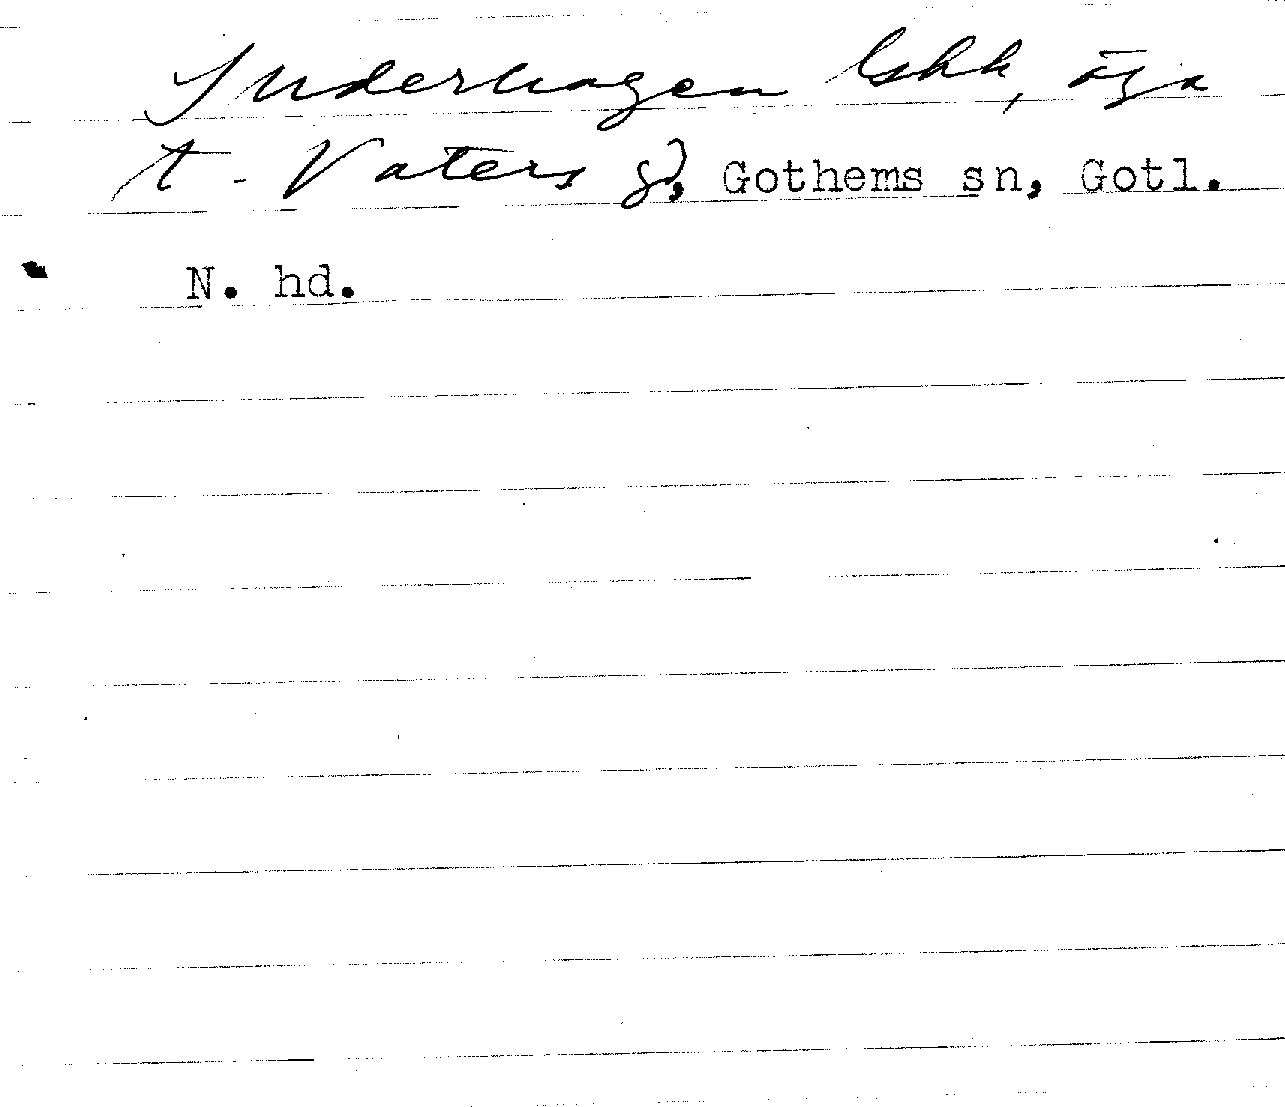 Suderhagen äga
t. Vaters gd, Gothems sn, Gotl.
N. hd.